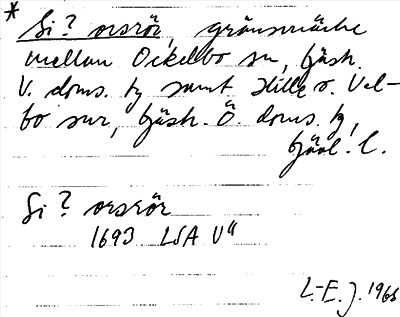 * Si? orsrör, gränsmärke
mellan Ockelbo sn, Gäsh.
V. doms. hg samt Hille o. Val-
bo snr, Gäsh. Ö. doms. hg,
Gävl. l.
Si? orsrör
1693 LSA U"
L.-E. J. 1965